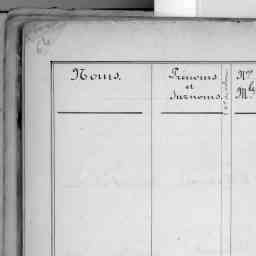 Noms.
Prénoms
et
Surnoms.
Nos
Mle